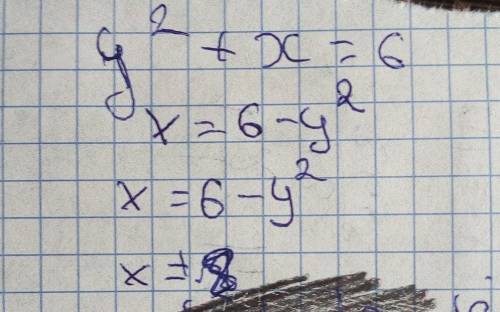 y² + x = 6
x = 6 - y²
x = 6 - y²
x =